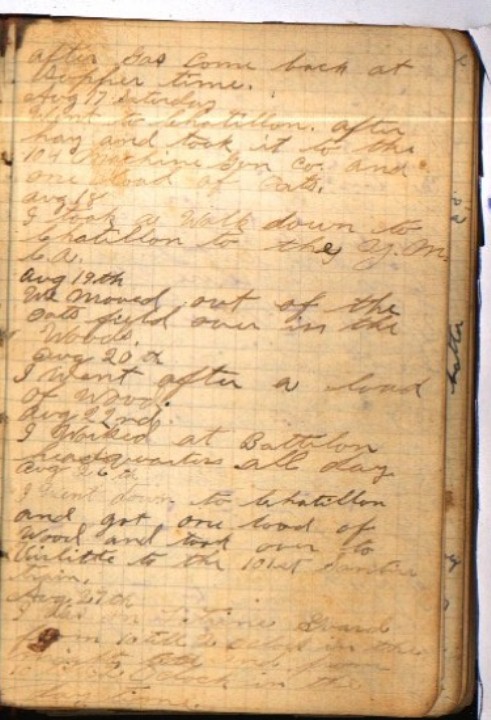 after gas come back at
Supper time.
Aug 17 Saturday
Went to Chatillon. after
hay and took it to the
104 Machine Gun Co. and
one load of oats.
Aug 18
I took a Walk down to
Chatillon to the Y.M.
C.A.
Aug 19th
We Moved out of the
oats field over in the
Woods.
Aug 20
I Went after a load
of Wood.
Aug 22nd.
I Worked at Battilon
headquarters all day
Aug 26th
I Went down to Chatillon
and got one load of
Wood and took over to
to the 101st
train.
Aug 27th
I Guard
from 10 till in the
and from
oclock in the
day time.